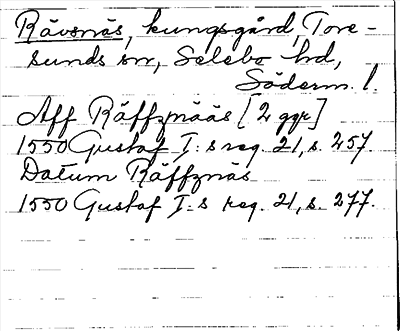 Rävsnäs, kungsgård, Tore-
sunds sn, Selebo hd,
Söderm. l.
Aff Räffznääs [2 ggr]
1550 Gustaf I:s reg. 21, s. 257.
Datum Räffznäs
1550 Gustaf I:s reg. 21, s. 277.